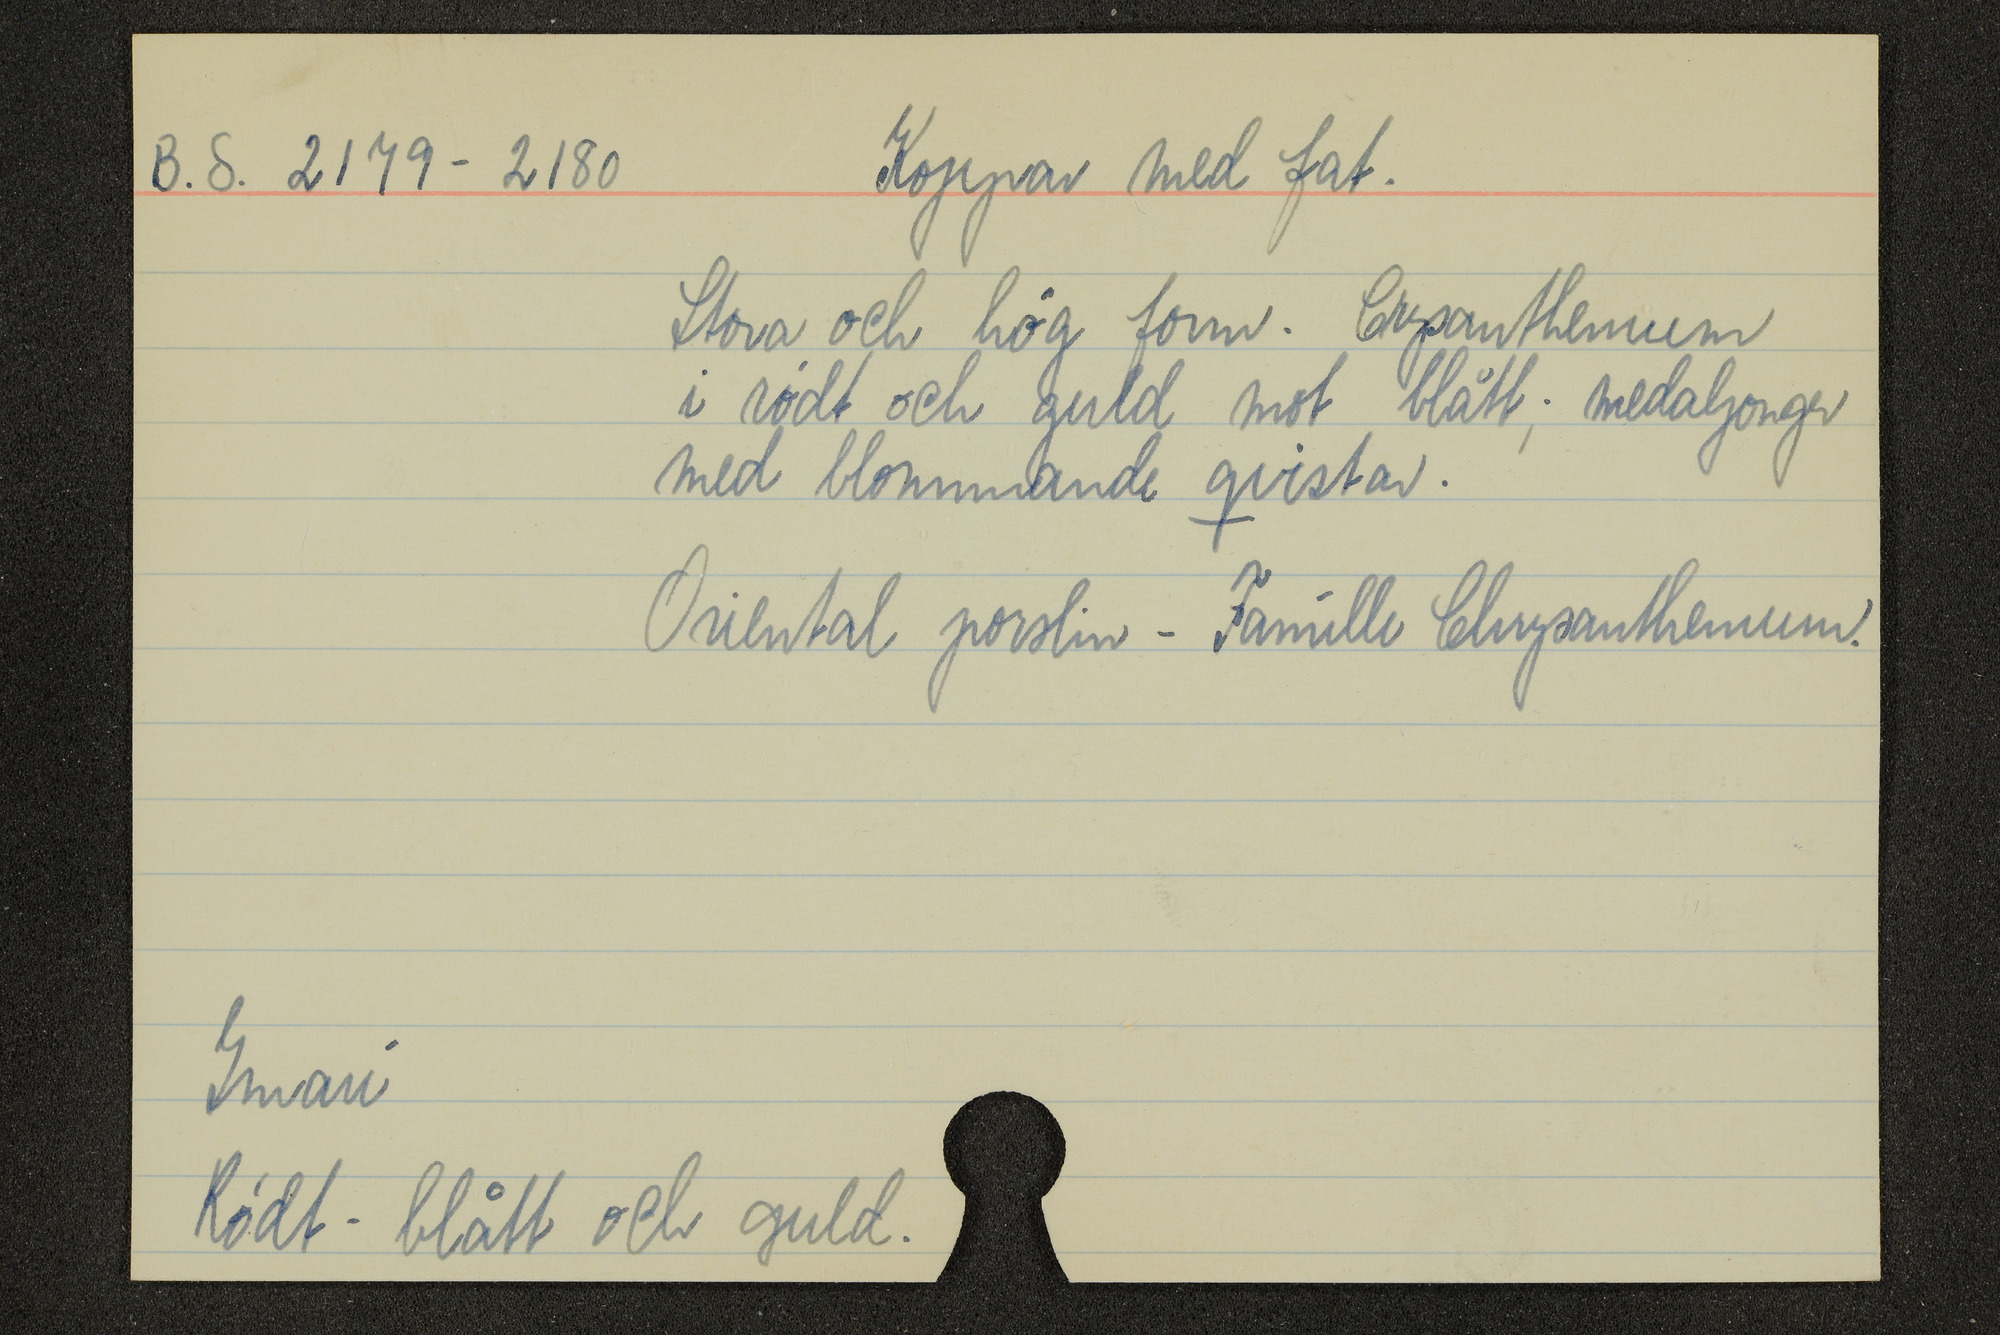 B.S. 2179-2180 Koppar med fat.
Stora och hög form. Crysanthemum
i rödt och guld mot blått; medaljonger
med blommande qvistar.
Oriental porslin - Famille Chrysanthemum.
Imari
Rödt- blått och guld.